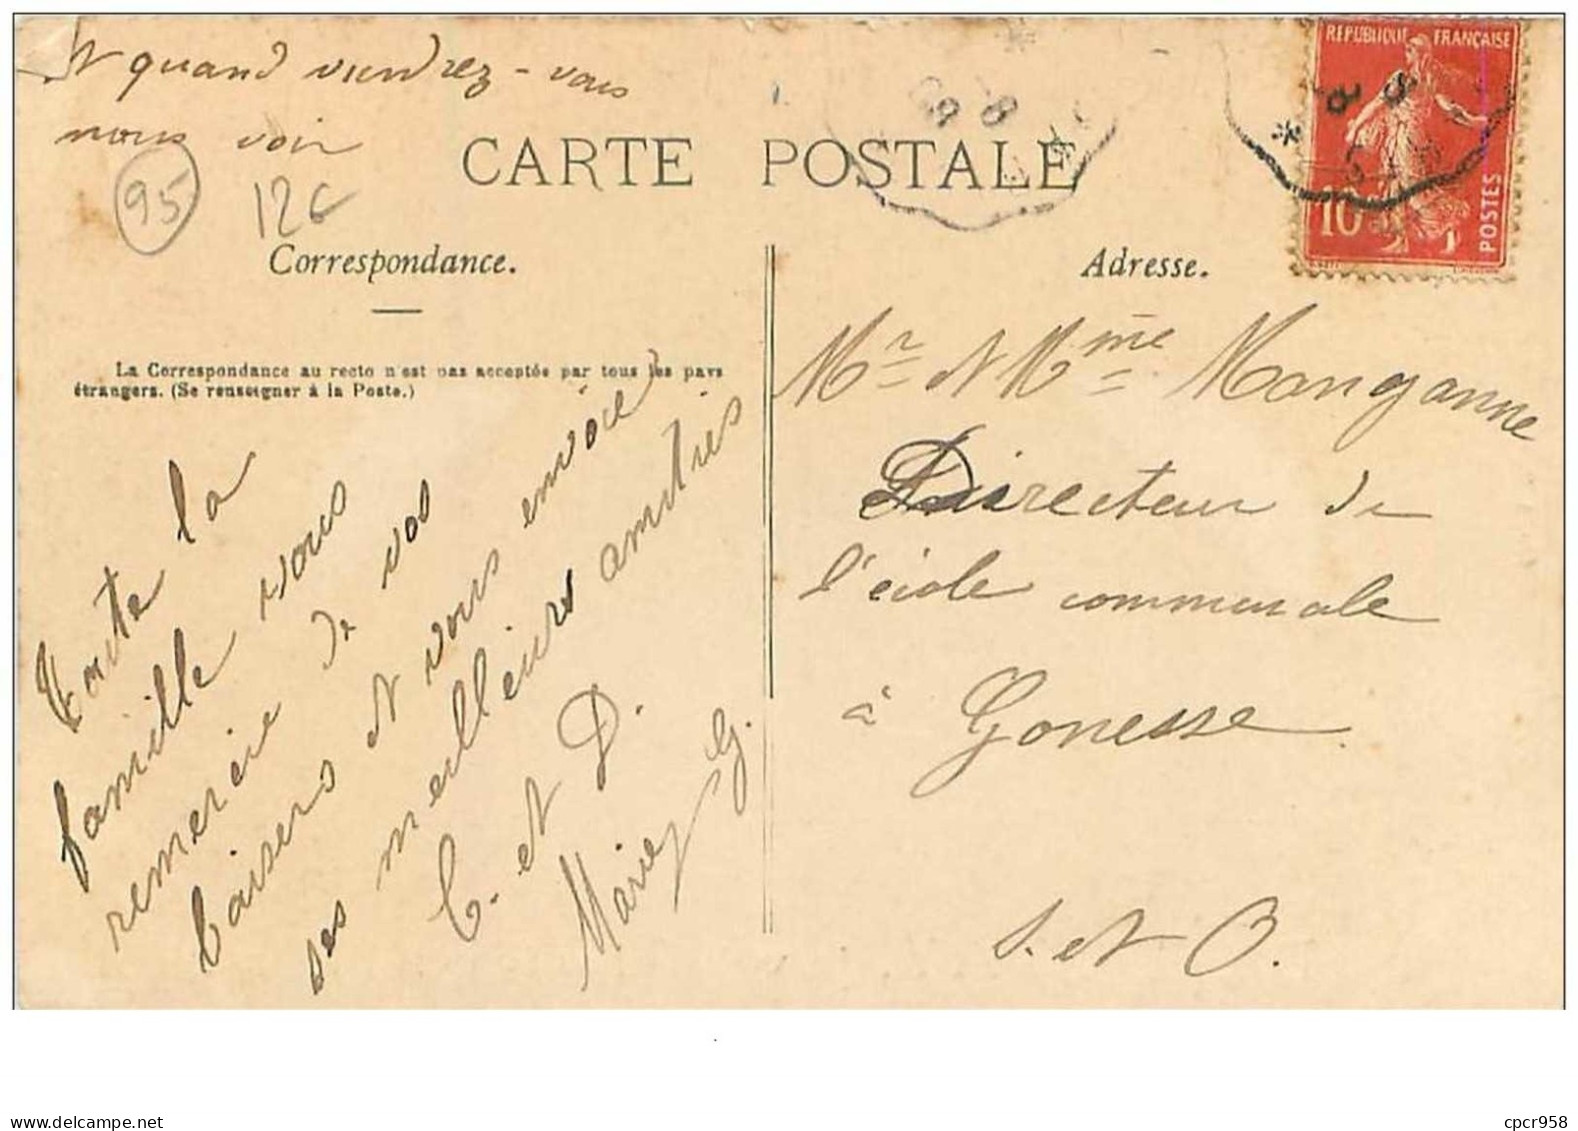 et quand viendrez-vous
nous voir
95
12C
CARTE POSTALE
REPUBLIQUE FRANÇAISE
10c
POSTES
Correspondance.
Adresse.
La Correspondance au recto n'est pas acceptée par tous les pays
étrangers. (Se renseigner à la Poste.)
Toute la
famille vous
remercie de vos
baisers et vous envoie
ses meilleures amitiés
C. et D.
Marie G.
Mr et Mme Manganne
Directeur de
l'école communale
à Gonesse
S. et O.
delcampe.net
cpcr958